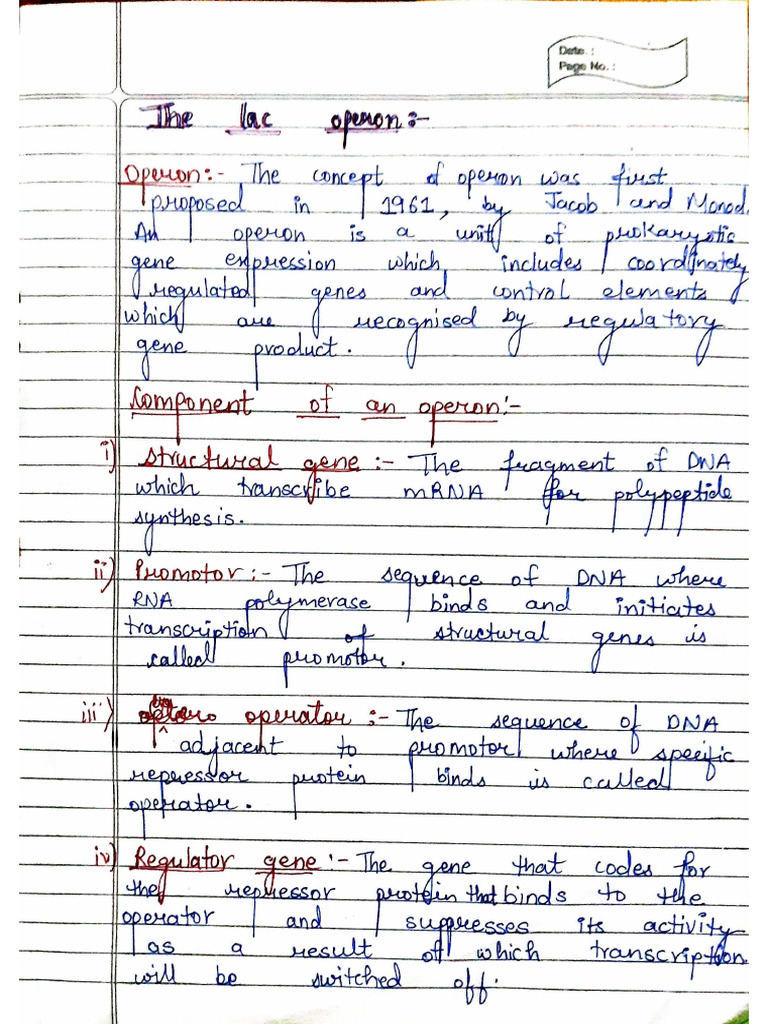 Date. :
Page No. :
The lac operon :-
Operon :- The concept of operon was first
proposed in 1961, by Jacob and Monod.
An operon is a unit of prokaryotic
gene expression which includes coordinately
regulated genes and control elements
which are recognised by regulatory
gene product.
Component of an operon :-
i) Structural gene :- The fragment of DNA
which transcribe mRNA for polypeptide
synthesis.
ii) Promotor :- The sequence of DNA where
RNA polymerase binds and initiates
transcription of structural genes is
called promotor.
iii) operator :- The sequence of DNA
adjacent to promotor where specific
repressor protein binds is called
operator.
iv) Regulator gene :- The gene that codes for
the repressor protein that binds to the
operator and suppresses its activity
as a result of which transcription
will be switched off.